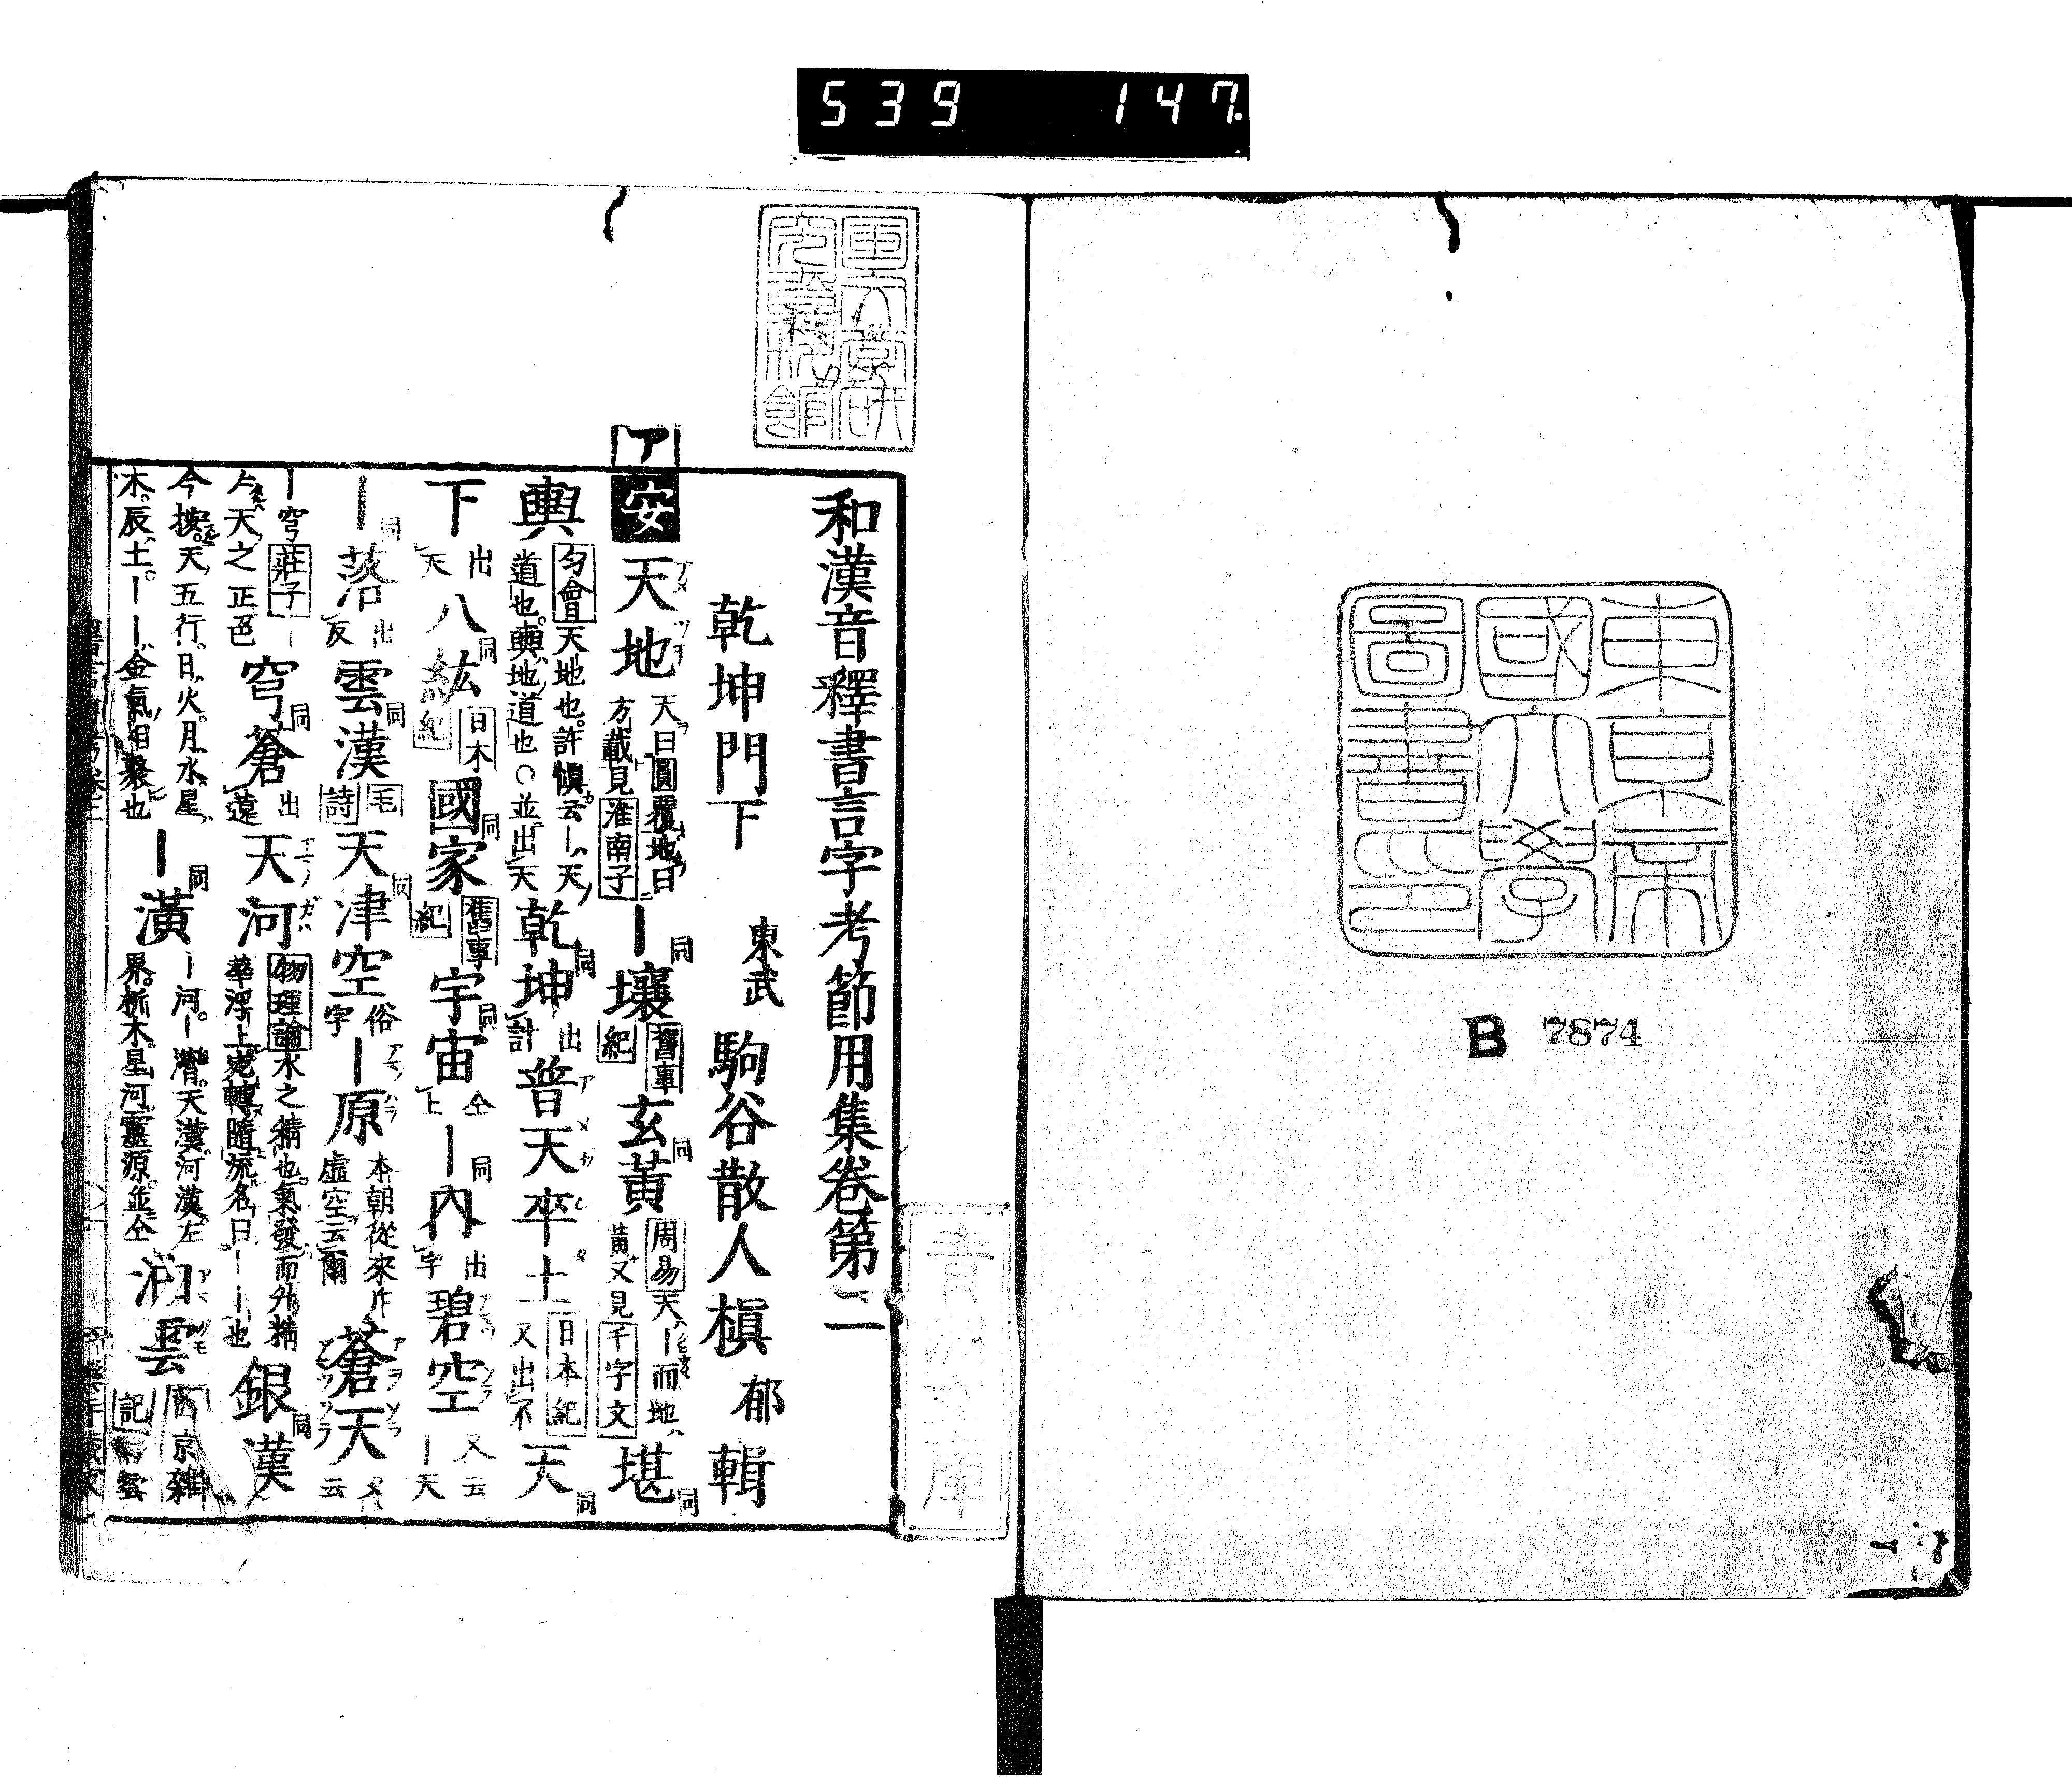 539 147.
東京帝
國大學
圖書印
B 7874
和漢音釋書言字考節用集卷第二
乾坤門下 東武 駒谷散人槇郁輯
ア
安 天地 天曰圓覆地曰方載見淮南子 ー壤 同 舊事紀 玄黃 同 周易天ー而地黃又見千字文 堪 同
輿 匀會天地也許愼云ー天道也輿地道也○並出天 乾坤 同 出計 普天卒土 日本紀又出不 天 同
下 出天 八紘 同 日本紀 國家 同 舊事紀 宇宙 同 仝上 ー內 同 出宇 碧空 又云ー天
ー落 同 出反 雲漢 同 毛詩 天津空 同 俗字 ー原 本朝從來斥虛空云爾 蒼天 又云
ー穹莊子 天之正色 穹蒼 同 出遠 天河 物理論水之精也氣發而外精華浮上宛轉隨流名曰ーー也 銀漢 同
今按天五行日火月水星木辰土ーー金氣相發也 ー潢 同 ー河ー潛天漢河漢左界析木星河靈源並仝 雲 京雜記